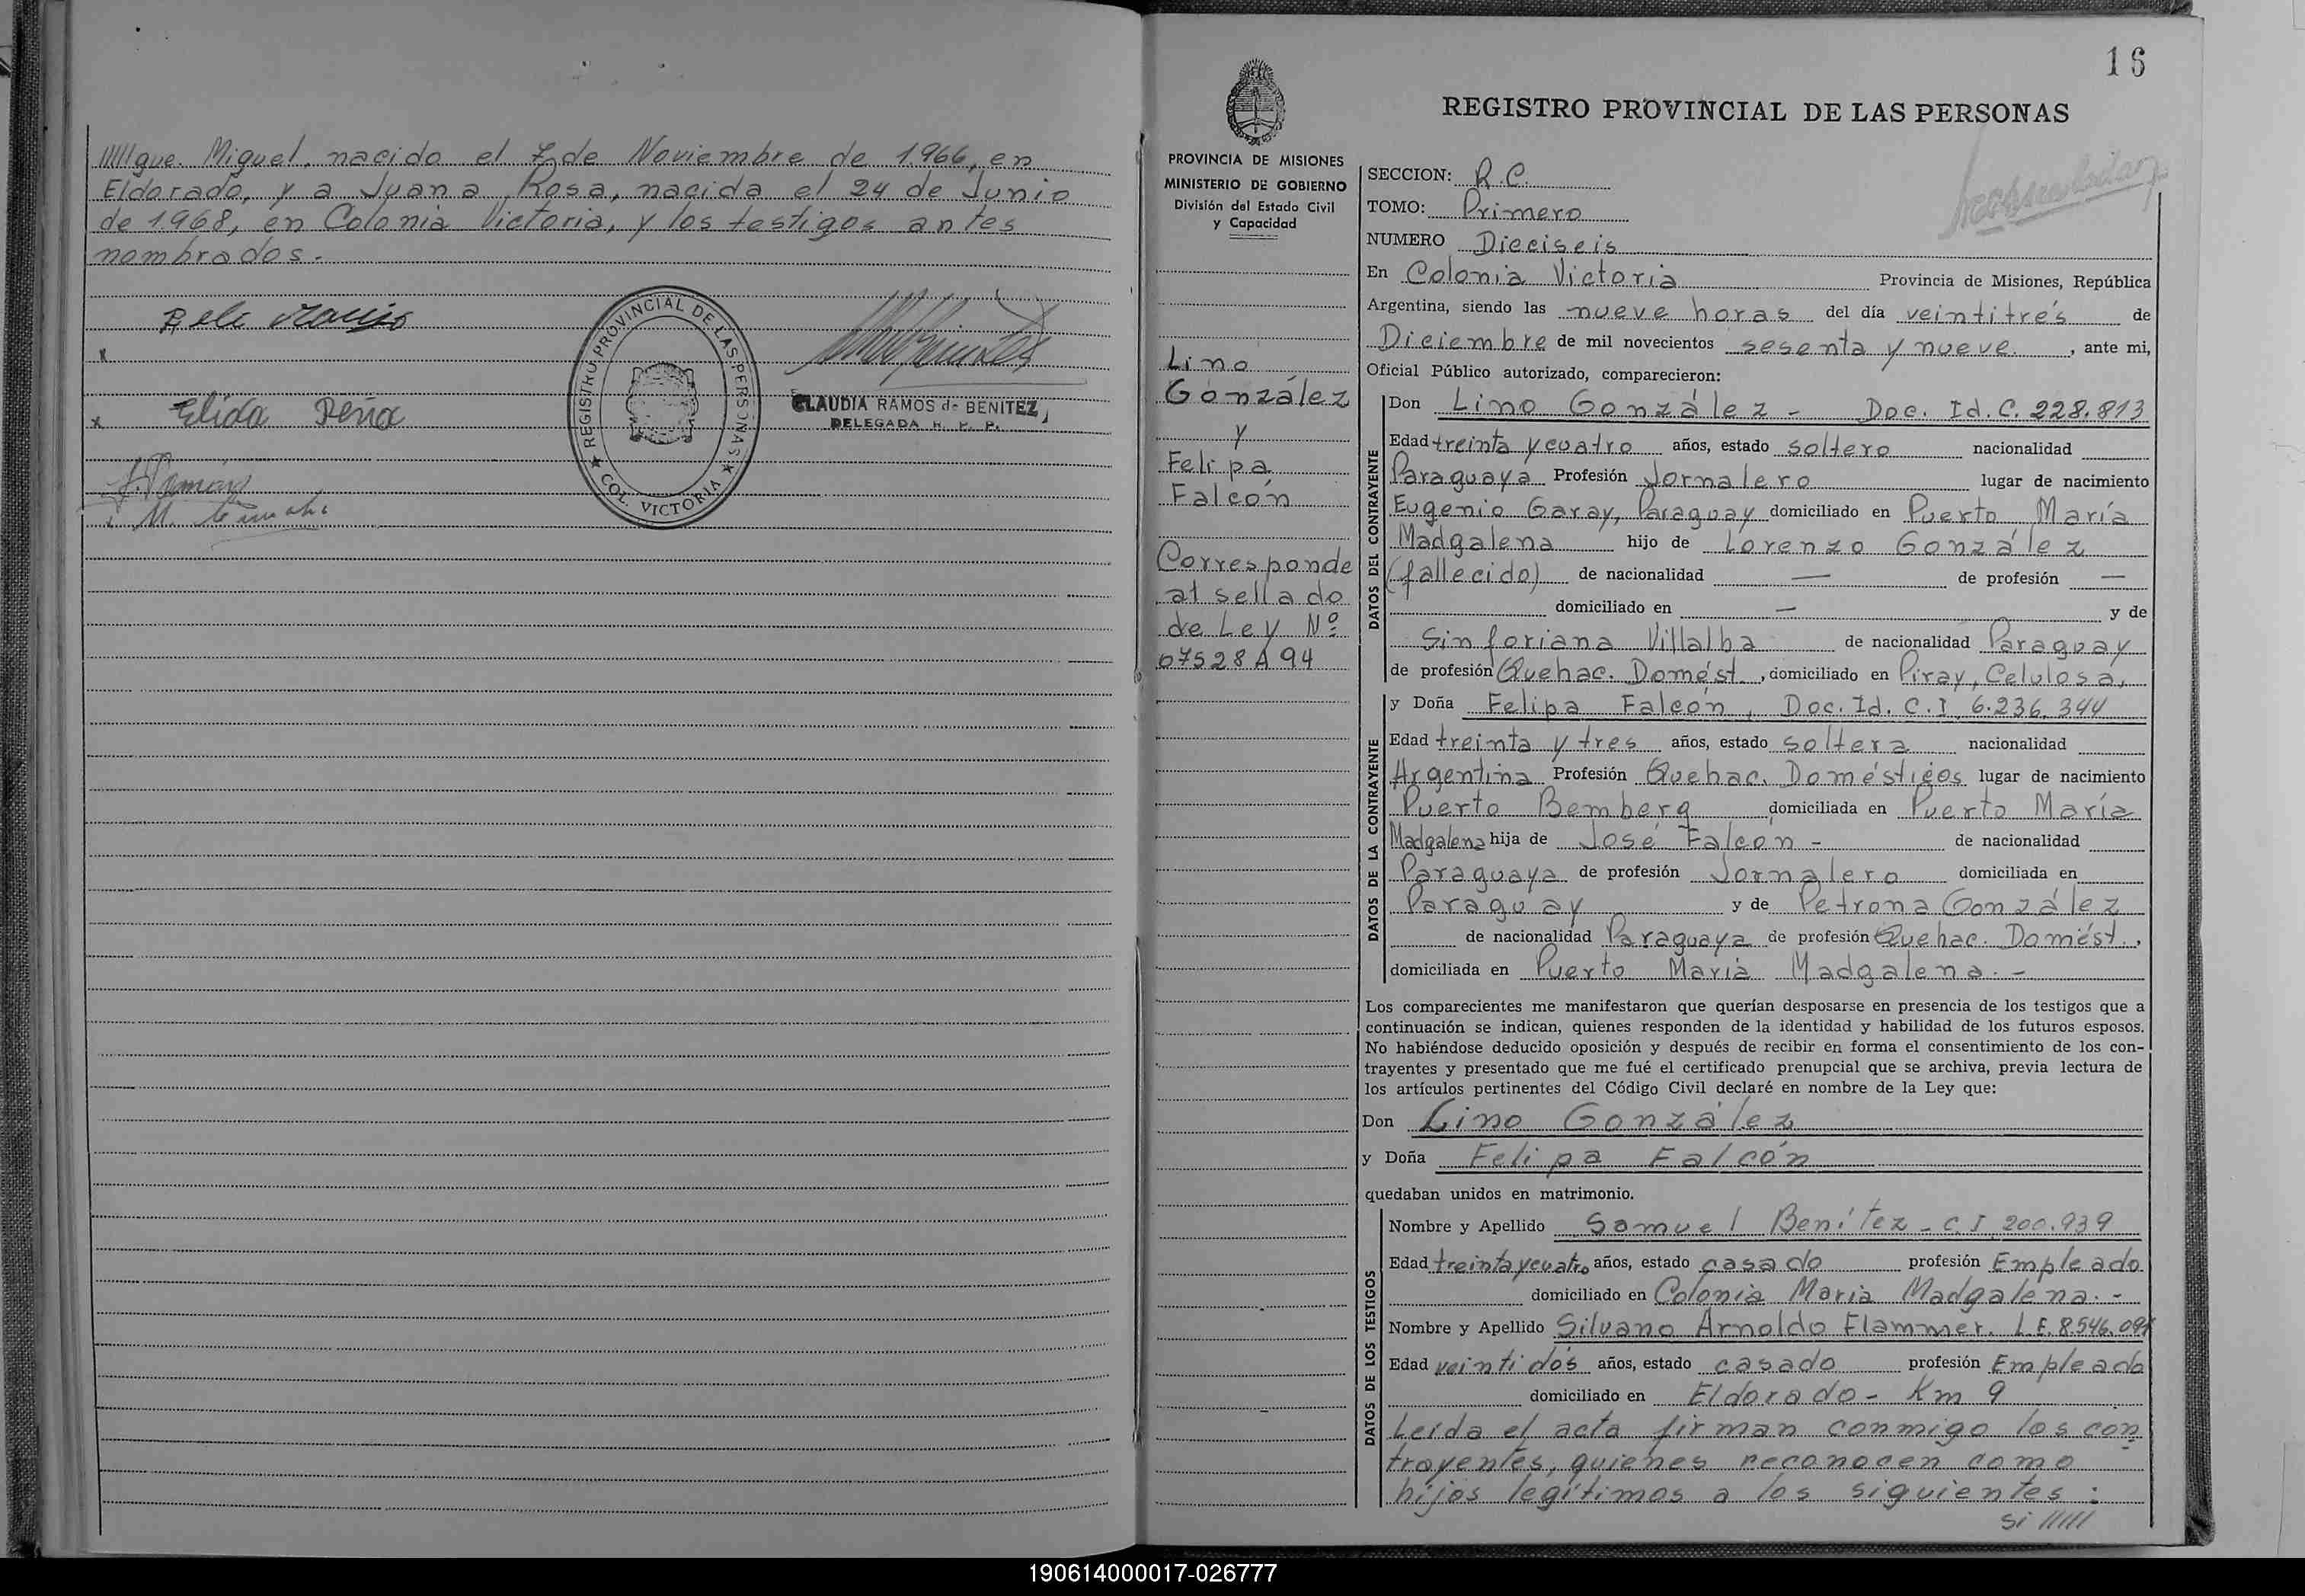 /////gue. Miguel, nacido el 7 de Noviembre de 1.966, en
Eldorado, y a Juana Rosa, nacida el 24 de Junio
de 1.968, en Colonia Victoria, y los testigos antes
nombrados.-
Elida Peña
REGISTRO PROVINCIAL DE LAS PERSONAS
★ COL. VICTORIA ★
CLAUDIA RAMOS de BENITEZ
DELEGADA R. P. P.
16
REGISTRO PROVINCIAL DE LAS PERSONAS
PROVINCIA DE MISIONES
MINISTERIO DE GOBIERNO
División del Estado Civil
y Capacidad
Lino
González
y
Felipa
Falcón
Corresponde
al sellado
de Ley Nº
07528A94
SECCION: R.C.
TOMO: Primero
NUMERO Dieciseis
En Colonia Victoria Provincia de Misiones, República
Argentina, siendo las nueve horas del día veintitrés de
Diciembre de mil novecientos sesenta y nueve. , ante mi,
Oficial Público autorizado, comparecieron:
DATOS DEL CONTRAYENTE
Don Lino González - Doc. Id. C. 228.813
Edad treinta y cuatro años, estado soltero nacionalidad
Paraguaya Profesión Jornalero lugar de nacimiento
Eugenio Garay, Paraguay domiciliado en Puerto María
Madgalena hijo de Lorenzo González
(fallecido) de nacionalidad — de profesión —
domiciliado en — y de
Sinforiana Villalba de nacionalidad Paraguay
de profesión Quehac. Domést. , domiciliado en Piray, Celulosa,
DATOS DE LA CONTRAYENTE
y Doña Felipa Falcón, Doc. Id. C.I. 6.236.344
Edad treinta y tres años, estado soltera nacionalidad
Argentina Profesión Quehac. Domésticos lugar de nacimiento
Puerto Bemberg domiciliada en Puerto María
Madgalena hija de José Falcón - de nacionalidad
Paraguaya de profesión Jornalero domiciliada en
Paraguay y de Petrona González
de nacionalidad Paraguaya de profesión Quehac. Domést.,
domiciliada en Puerto Maria Madgalena. -
Los comparecientes me manifestaron que querían desposarse en presencia de los testigos que a
continuación se indican, quienes responden de la identidad y habilidad de los futuros esposos.
No habiéndose deducido oposición y después de recibir en forma el consentimiento de los con-
trayentes y presentado que me fué el certificado prenupcial que se archiva, previa lectura de
los artículos pertinentes del Código Civil declaré en nombre de la Ley que:
Don Lino González
y Doña Felipa Falcón
quedaban unidos en matrimonio.
DATOS DE LOS TESTIGOS
Nombre y Apellido Samuel Benítez - C.I. 200.939
Edad treinta y cuatro años, estado casado profesión Empleado
domiciliado en Colonia Maria Madgalena. -
Nombre y Apellido Silvano Arnoldo Flammer. L.E. 8.546.091
Edad veintidós años, estado casado profesión Empleado
domiciliado en Eldorado - Km 9
Leída el acta firman conmigo los con
trayentes, quienes reconocen como
hijos legítimos a los siguientes:
Si /////
190614000017-026777